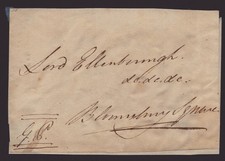 Lord Ellenborough
&c. &c. &c.
Bloomsbury Square